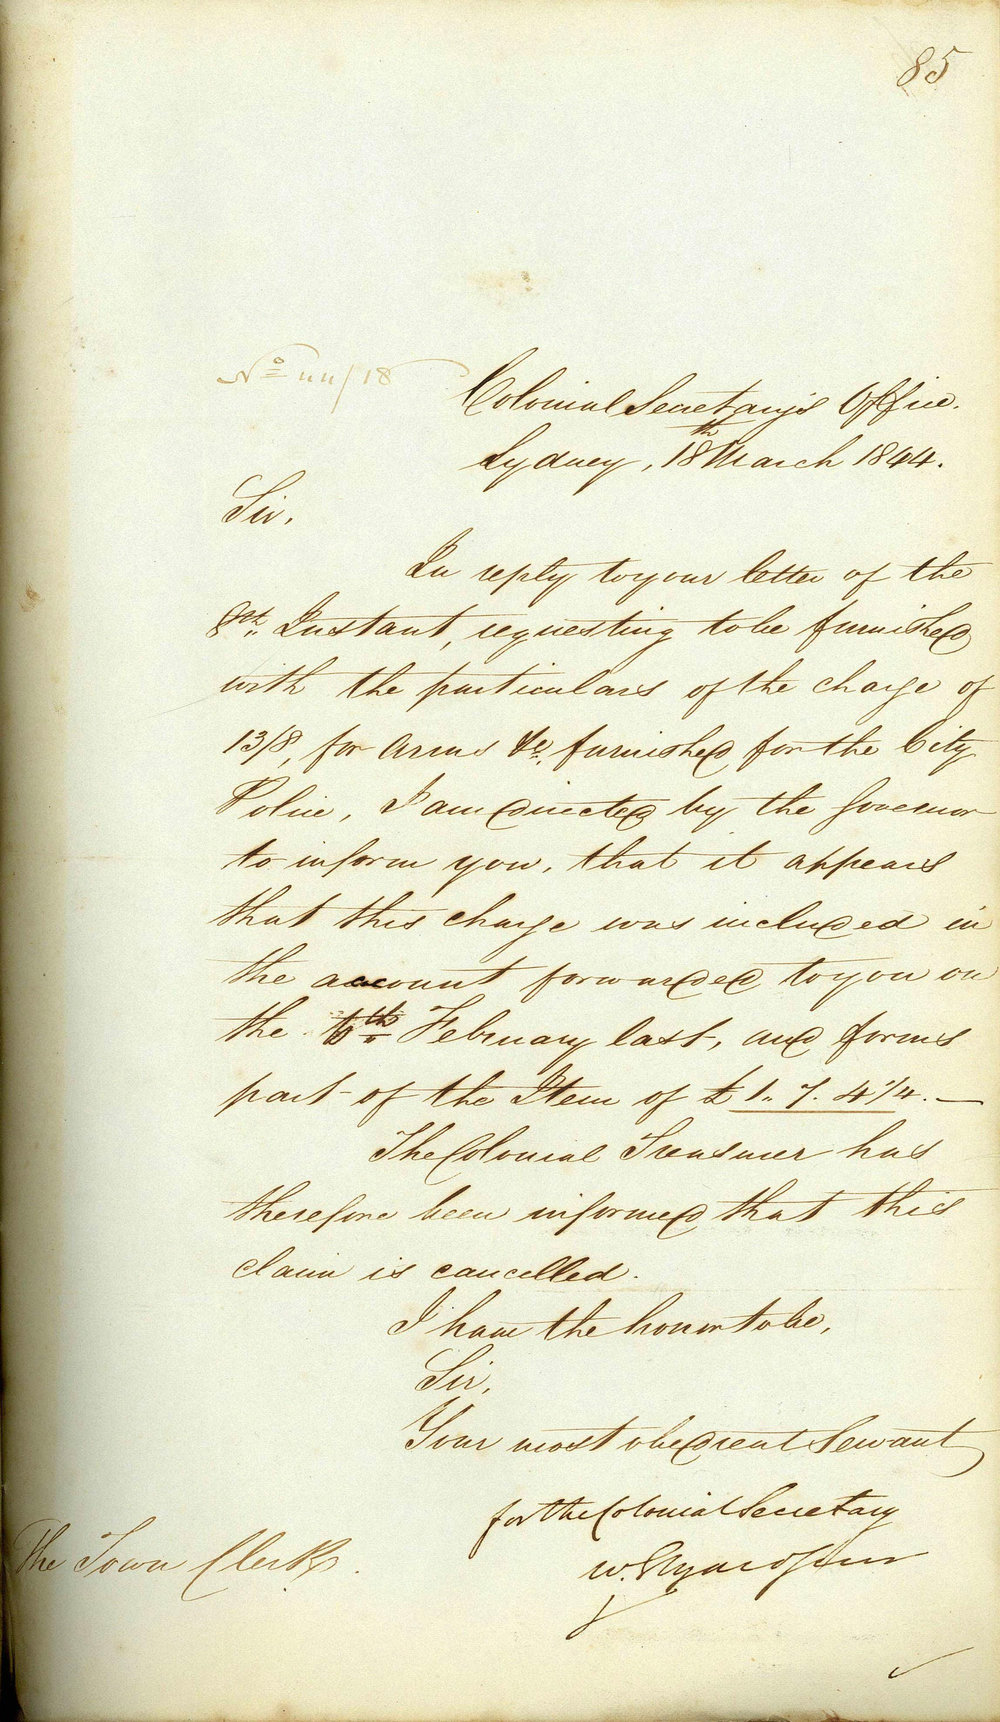 85
No 44/18
Colonial Secretary's Office.
Sydney, 18th March 1844.
Sir,
In reply to your letter of the
8th Instant, requesting to be furnished
with the particulars of the charge of
13/8, for Arms &c. furnished for the City
Police, I am directed by the Governor
to inform you, that it appears
that this charge was included in
the account forwarded to you on
the 6th February last, and forms
part of the Item of £1. 7. 4 1/4. —
The Colonial Treasurer has
therefore been informed that this
claim is cancelled.
I have the honor to be,
Sir,
Your most obedient Servant
for the Colonial Secretary
W.
The Town Clerk.